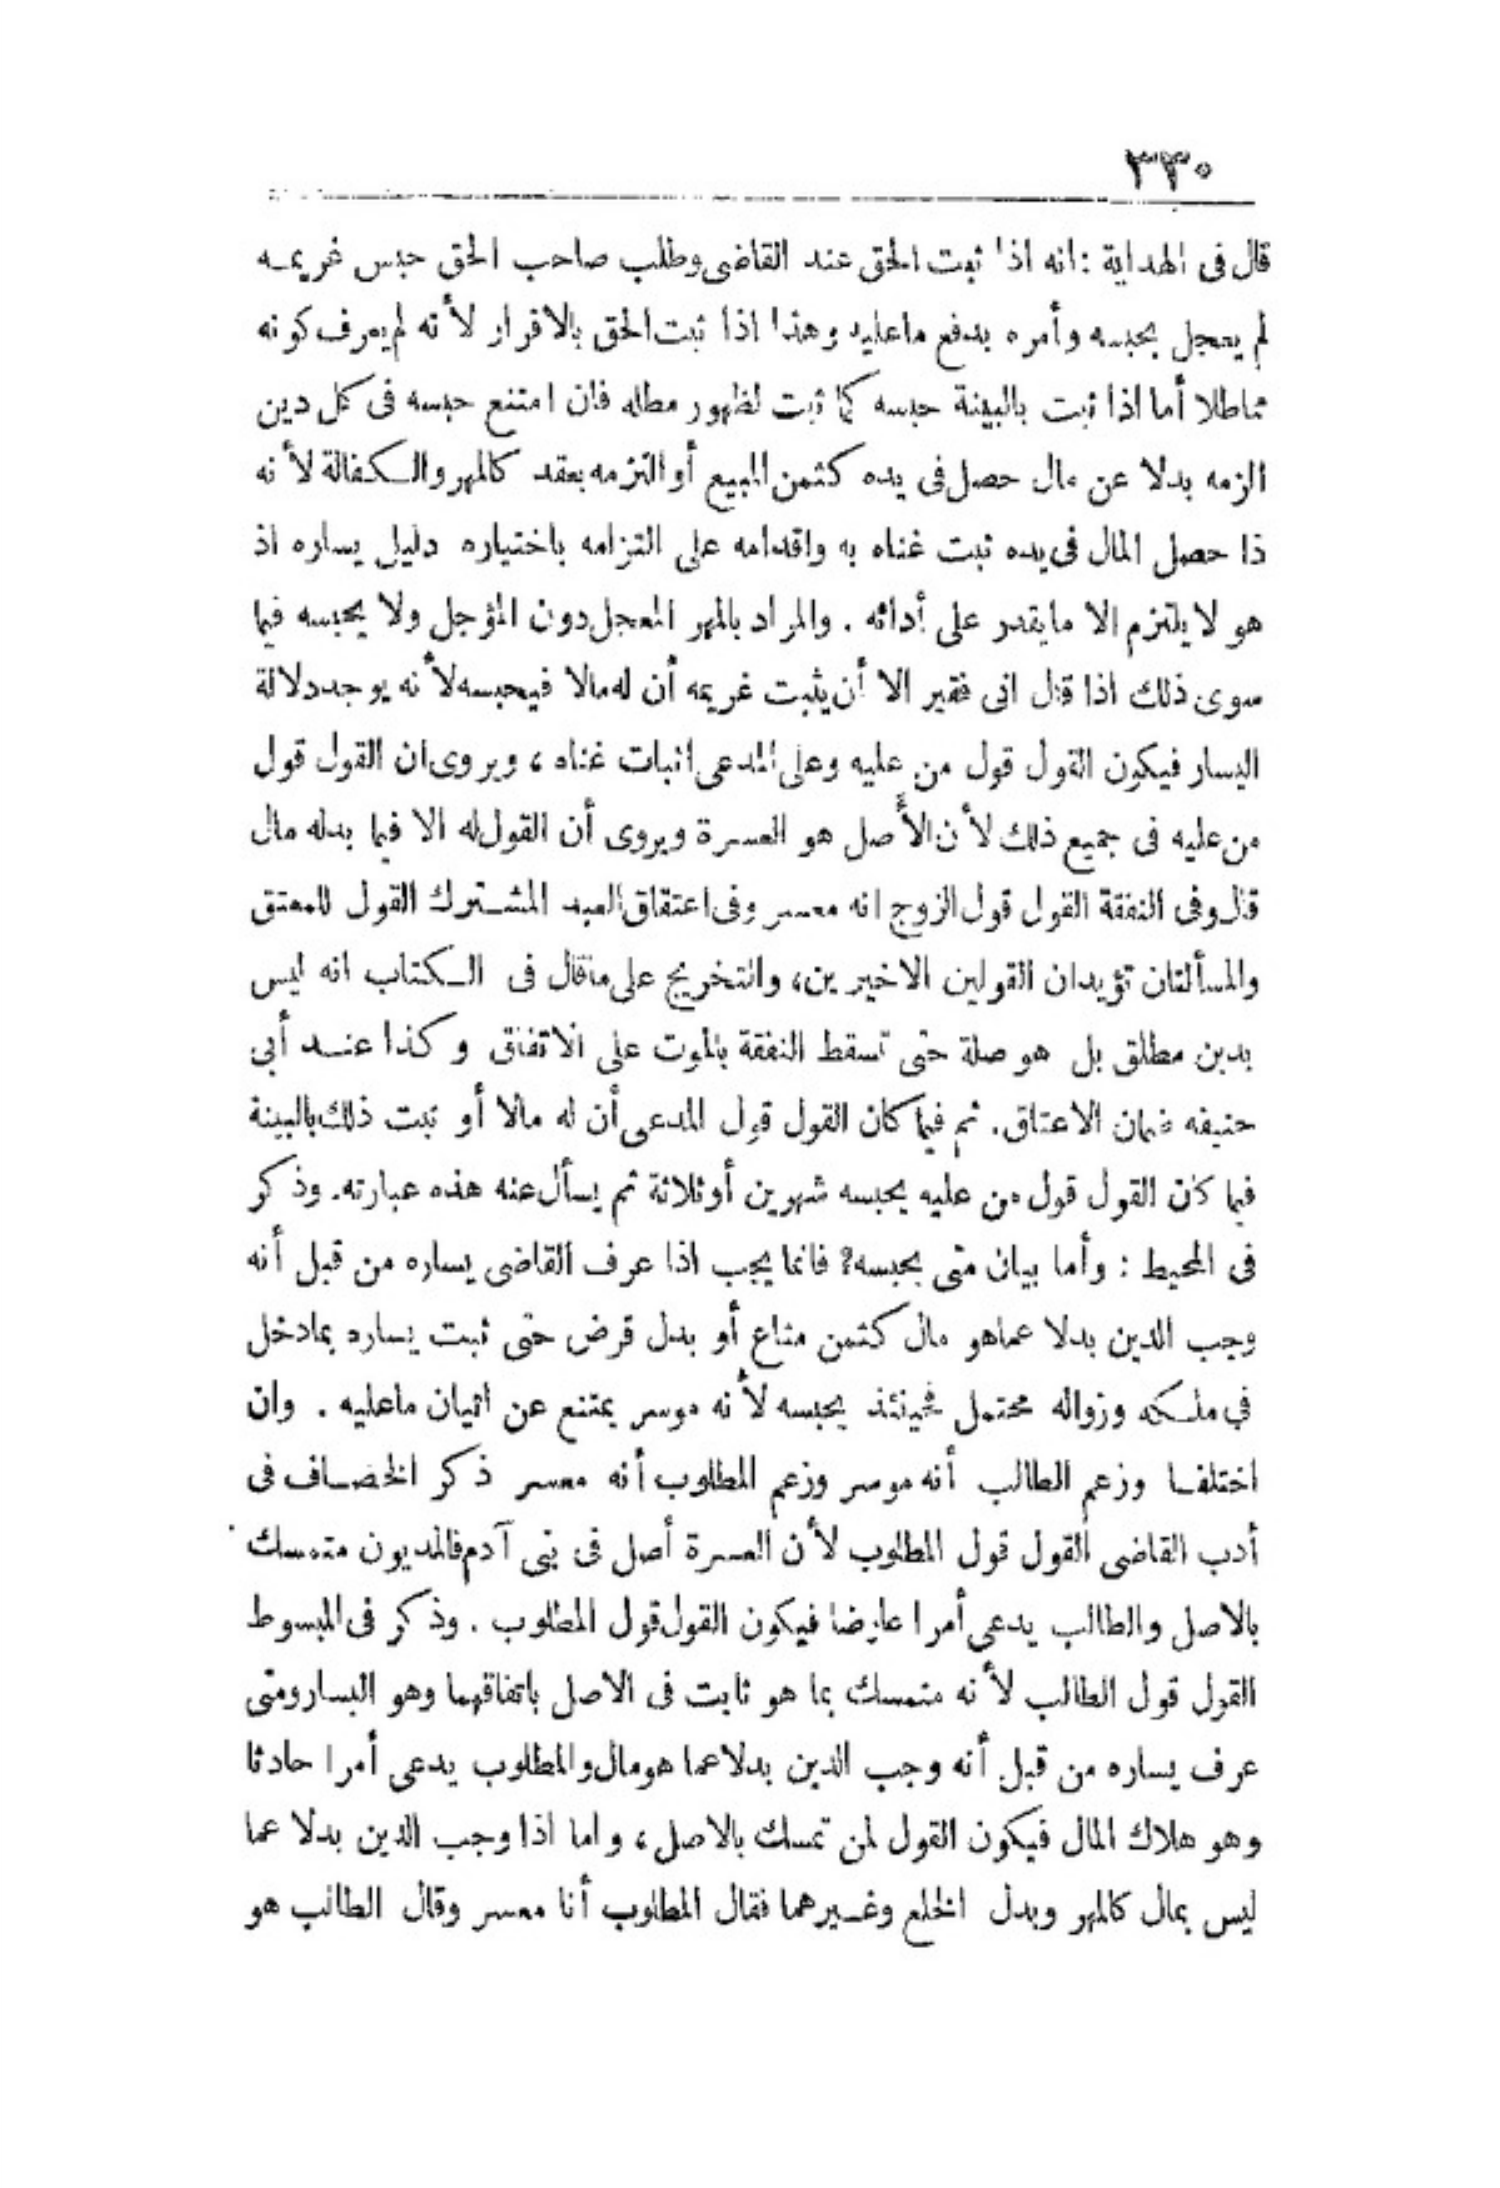 ٣٣٠
قال فى الهداية : انه اذا ثبت الحق عند القاضى وطلب صاحب الحق حبس غريمه
لم يعجل بحبسه وأمره بدفع ماعليه وهذا اذا ثبت الحق بالاقرار لأنه لم يعرف كونه
مماطلا أما اذا ثبت بالبينة حبسه كما ثبت لظهور مطله فان امتنع حبسه فى كل دين
الزمه بدلا عن مال حصل فى يده كثمن المبيع أو التزمه بعقد كالمهر والكفالة لأنه
ذا حصل المال فى يده ثبت غناه به واقدامه على التزامه باختياره دليل يساره اذ
هو لا يلتزم الا ما يقدر على أدائه . والمراد بالمهر المعجل دون المؤجل ولا يحبسه فيما
سوى ذلك اذا قال انى فقير الا أن يثبت غريمه أن له مالا فيحبسه لأنه يوجد دلالة
اليسار فيكون القول قول من عليه وعلى المدعى اثبات غناه ، ويروى ان القول قول
من عليه فى جميع ذلك لأن الأصل هو العسرة ويروى أن القول له الا فيما بدله مال
قال وفى النفقة القول قول الزوج انه معسر وفى اعتقاق العبد المشترك القول للمعتق
والمسألتان تؤيدان القولين الاخيرين، والتخريج على ماقال فى الكتاب انه ليس
بدين مطلق بل هو صلة حتى تسقط النفقة بالموت على الاتفاق وكذا عند أبي
حنيفه ضمان الاعتاق. ثم فيما كان القول قول المدعى أن له مالا أو ثبت ذلك بالبينة
فيما كان القول قول من عليه يحبسه شهرين أو ثلاثة ثم يسأل عنه هذه عبارته. وذكر
فى المحيط : وأما بيان متى يحبسه؟ فانما يجب اذا عرف القاضى يساره من قبل أنه
وجب الدين بدلا عماهو مال كثمن متاع أو بدل قرض حتى ثبت يساره بمادخل
في ملكه وزواله محتمل فحينئذ يحبسه لأنه موسر يمتنع عن اتيان ماعليه . وان
اختلفا وزعم الطالب أنه موسر وزعم المطلوب أنه معسر ذكر الخصاف فى
أدب القاضى القول قول المطلوب لأن العسرة أصل فى بنى آدم فالمديون متمسك
بالاصل والطالب يدعى أمرا عارضا فيكون القول قول المطلوب . وذكر فى المبسوط
القول قول الطالب لأنه متمسك بما هو ثابت فى الاصل باتفاقهما وهو اليسار ومتى
عرف يساره من قبل أنه وجب الدين بدلا عما هو مال والمطلوب يدعى أمرا حادثا
وهو هلاك المال فيكون القول لمن تمسك بالاصل ، واما اذا وجب الدين بدلا عما
ليس بمال كالمهر وبدل الخلع وغيرهما فقال المطلوب أنا معسر وقال الطالب هو